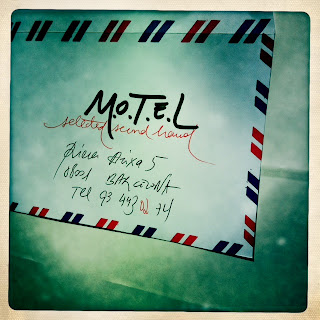 M.O.T.E.L
selected second hand
Riera Baixa 5
08001 BARCELONA
Tel 93 443 08 74